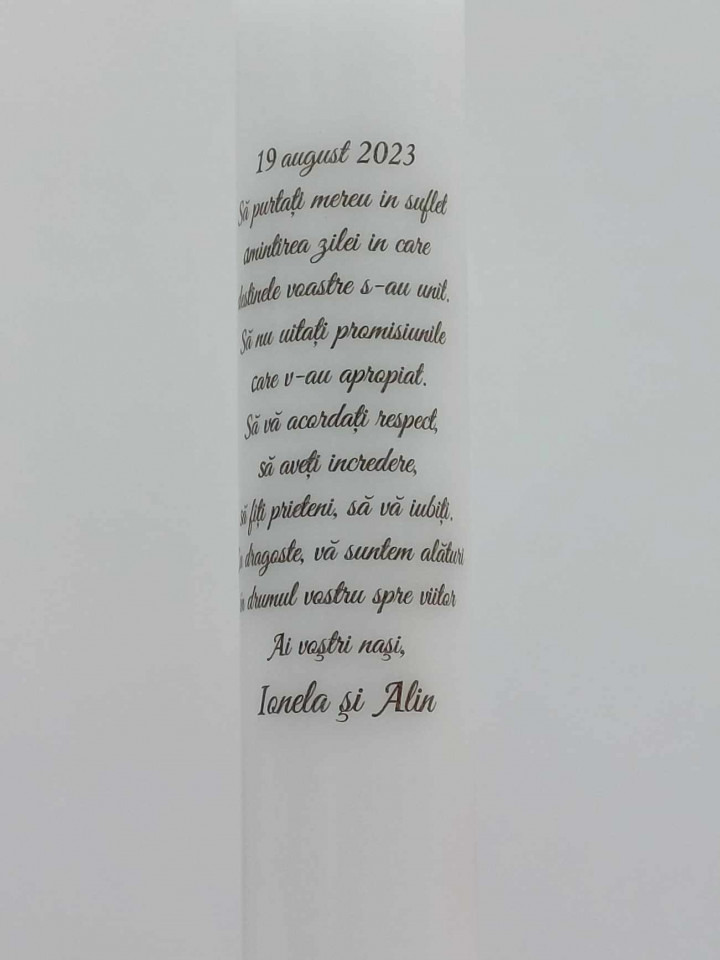 19 august 2023
Să purtați mereu in suflet
amintirea zilei in care
destinele voastre s-au unit.
Să nu uitați promisiunile
care v-au apropiat.
Să vă acordați respect,
să aveți incredere,
să fiți prieteni, să vă iubiți.
Cu dragoste, vă suntem alături
in drumul vostru spre viitor
Ai voştri naşi,
Ionela şi Alin